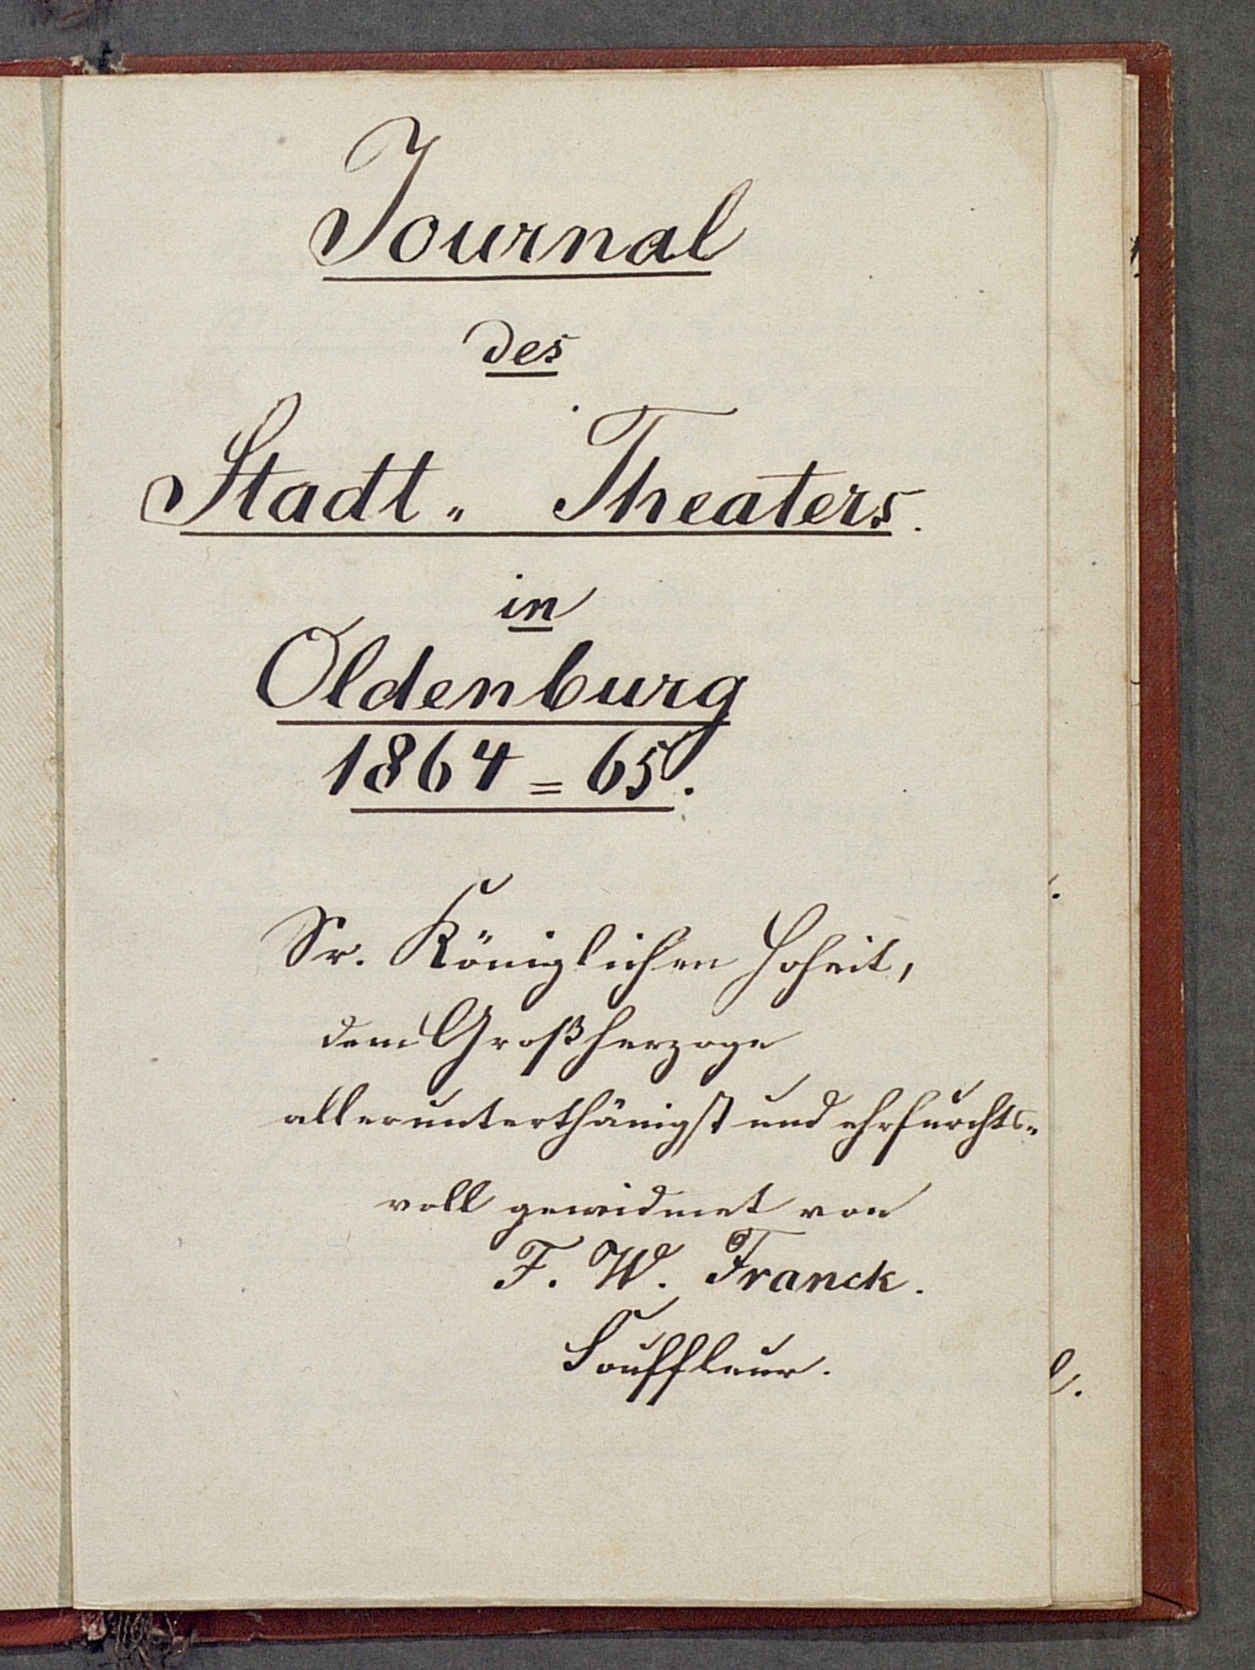 Journal
des
Stadt„ Theaters.
in
Oldenburg
1864 = 65.
Sr. Königlichen Hoheit,
dem Großherzoge
allerunterthänigst und ehrfurchts„
voll gewidmet von
F. W. Franck.
Souffleur.